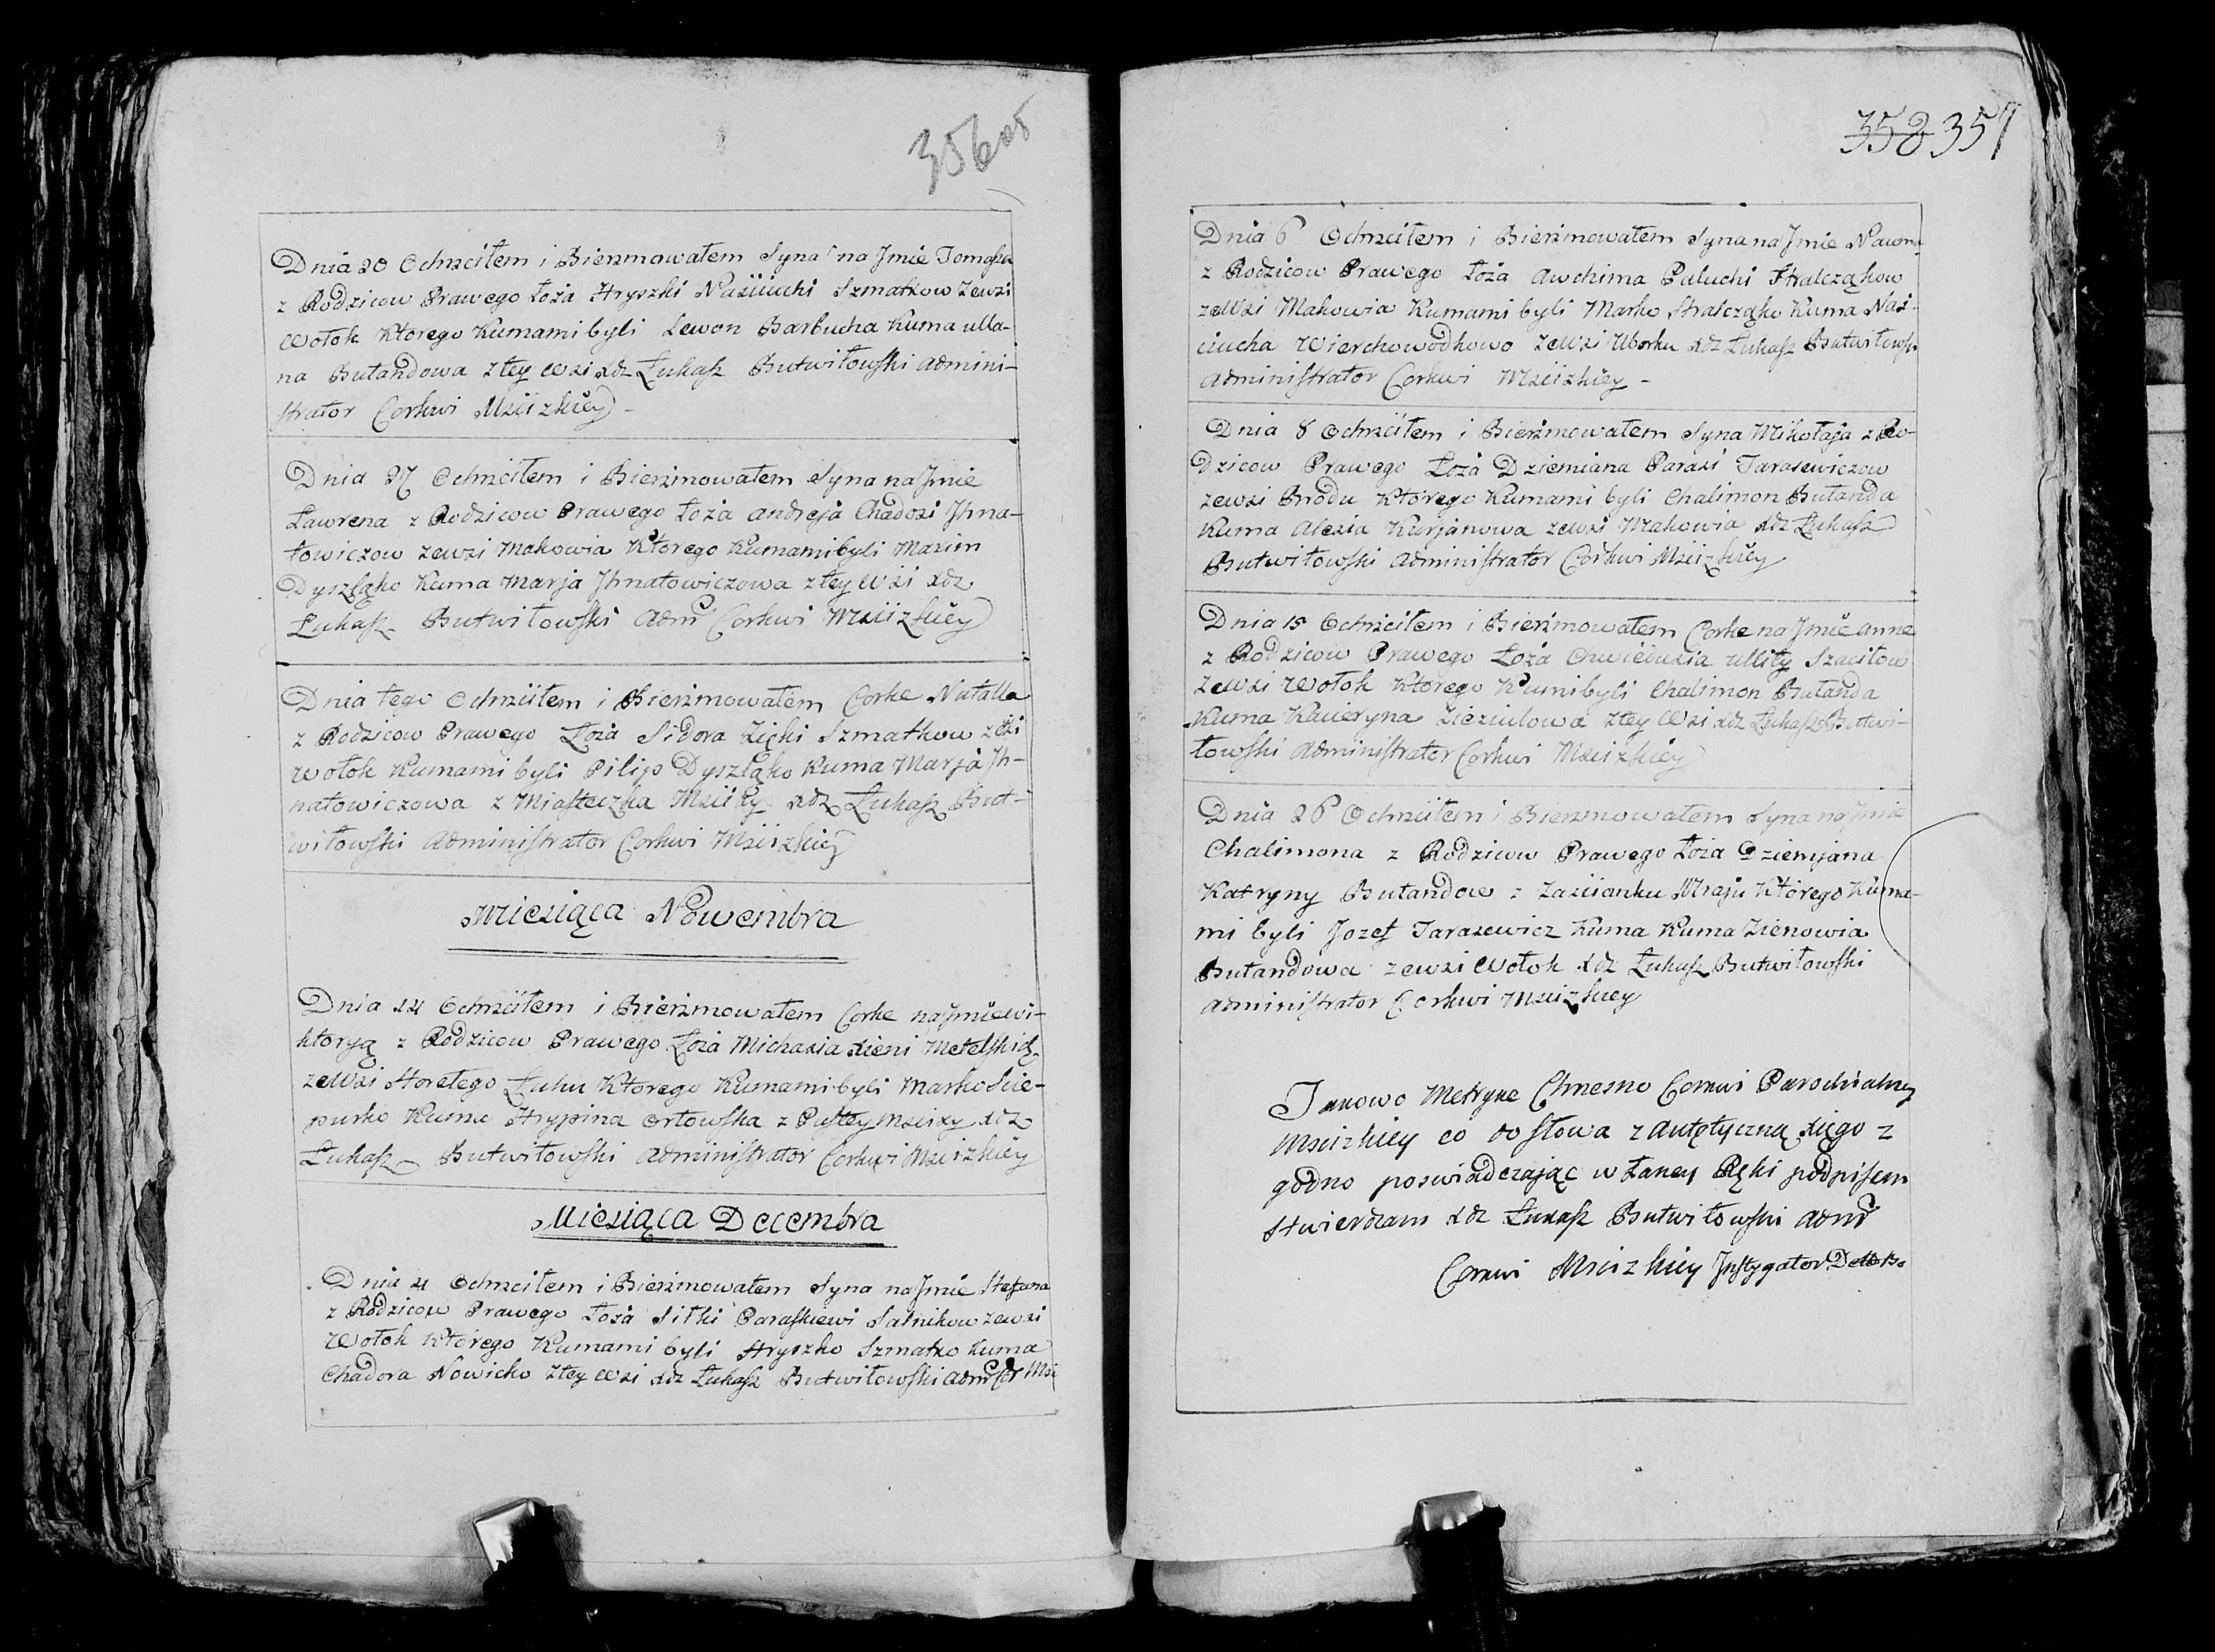 356 об
Dnia 20 Ochrzciłem i Bierzmowałem Syna na Jmie Tomasza
z Rodzicow Prawego Łoża Hryszki Naściuchi Szmatkow zewsi
Wołok Ktorego Kumami byli Lewon Barbucha Kuma ulla-
na Bułandowa z tey wsi xdz Łukasz Butwiłowski admini-
strator Cerkwi Msciizkiey
Dnia 27 Ochrzciłem i Bierzmowałem Syna na Jmie
Ławrena z Rodzicow Prawego Łoża andreja Chadosi Jhna-
towiczow zewsi Makowia Ktorego Kumami byli Maxim
Dyszląko Kuma Marja Jhnatowiczowa z tey wsi xdz
Łukasz Butwiłowski admr Cerkwi Msciizkiey
Dnia tego Ochrzciłem i Bierzmowałem Corke Natalla
z Rodzicow Prawego Łoża Sidora Zięki Szmatkow zewsi
Wołok Kumami byli Pilip Dyszląko Kuma Marja Jh-
natowiczowa z Miasteczka Msciży xdz Łukasz But-
wiłowski administrator Cerkwi Msciizkiey
Miesiąca Nowembra
Dnia 14 Ochrzciłem i Bierzmowałem Corke na Jmie wi-
ktoryą z Rodzicow Prawego Łoża Michasia xieni Metelskich
zewsi Horełego Luhu Ktorego Kumami byli Marko Scie-
purko Kuma Hrypina orłowska z Pustey Mscizy xdz
Łukasz Butwiłowski administrator Cerkwi Mscizkiey
Miesiąca Decembra
Dnia 4 Ochrzciłem i Bierzmowałem Syna na Jmie Stefana
z Rodzicow Prawego Łoża Siłki Paraskiewi Salnikow zewsi
Wołok Ktorego Kumami byli Hryszko Szmatko Kuma
Chadora Nowicko z tey wsi xdz Łukasz Butwiłowski admr Cer Msc
358 357
Dnia 6 Ochrzciłem i Bierzmowałem Syna na Jmie Nawma
z Rodzicow Prawego Łoża Awchima Paluchi Stralcząkow
zewsi Makowia Kumami byli Marko Stralcząko Kuma Naś-
ciucha Wierchowodkowo zewsi Uborku xdz Łukasz Butwiłowski
administrator Cerkwi Msciizkiey
Dnia 8 Ochrzciłem i Bierzmowałem Syna Mikołaja z Ro-
dzicow Prawego Łoża Dziemiana Parasi Tarasewiczow
zewsi Brodu Ktorego Kumami byli Chalimon Bułanda
Kuma Alexia Kurjanowa zewsi Makowia xdz Łukasz
Butwiłowski administrator Cerkwi Msciizkiey
Dnia 15 Ochrzciłem i Bierzmowałem Corke na Jmie anne
z Rodzicow Prawego Łoża Chwiedusia ullity Szaciłow
zewsi Wołok Ktorego Kumi byli Chalimon Bułanda
Kuma Kacieryna Zieziulowa z tey wsi xdz Łukasz Butwi-
łowski administrator Cerkwi Mscizkiey
Dnia 26 Ochrzciłem i Bierzmowałem Syna na Jmie
Chalimona z Rodzicow Prawego Łoża Dziemjana
Katryny Bułandow z Zascianku Mraju Ktorego Kuma-
mi byli Jozef Tarasewicz Kuma Kuma Zienowia
Bułandowa zewsi Wołok xdz Łukasz Butwiłowski
administrator Cerkwi Mscizkiey
Takowo Metryke Chresno Cerkwi Parochialney
Mscizkiey co do słowa z autętyczną xięgo z
godno poswiadczając właney Ręki podpisem
stwierdzam xdz Łukasz Butwiłowski admr
Cerkwi Mscizkiey Jnstygator